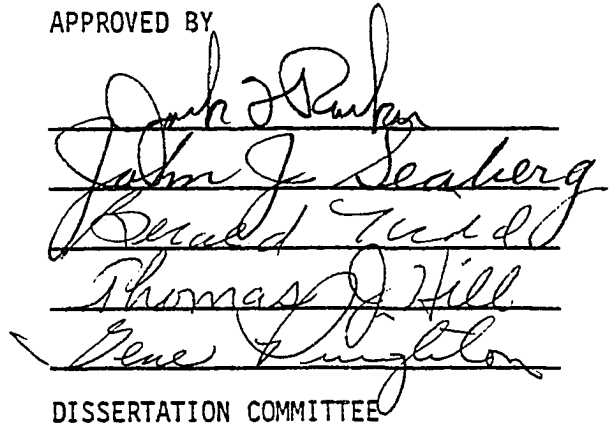 APPROVED BY
Jack F Parker
John J Seaberg
Gerald Kidd
Thomas J Hill
Gene Pingleton
DISSERTATION COMMITTEE